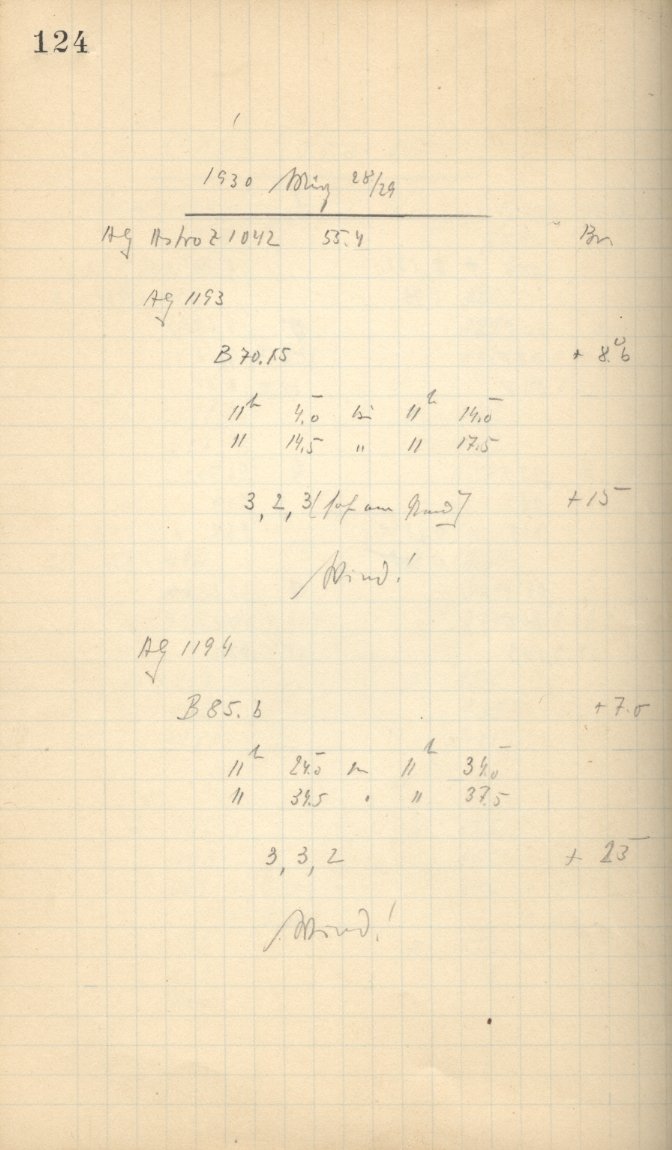 124
1930 März 28/29
AG Astro Z 1042 55.4 Br
AG 1193
B 70.15 + 8.0
11h 4.0 bis 11h 14.0
11 14.5 " 11 17.5
3, 2, 3 am +15
Wind!
AG 1194
B 85.6 +7.0
11h 24.0 11h 34.0
11 34.5 " 11 37.5
3, 3, 2 + 25
Wind!